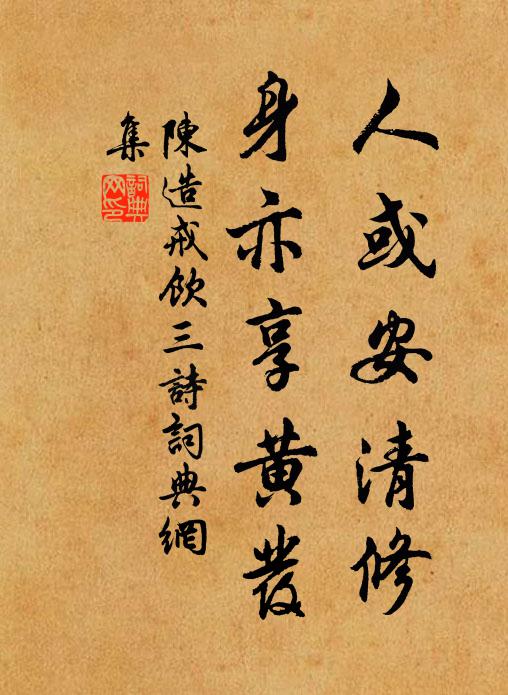 人或安清修
身亦享黄發
陳造戒飲三詩詞典網
集
詞典
网印